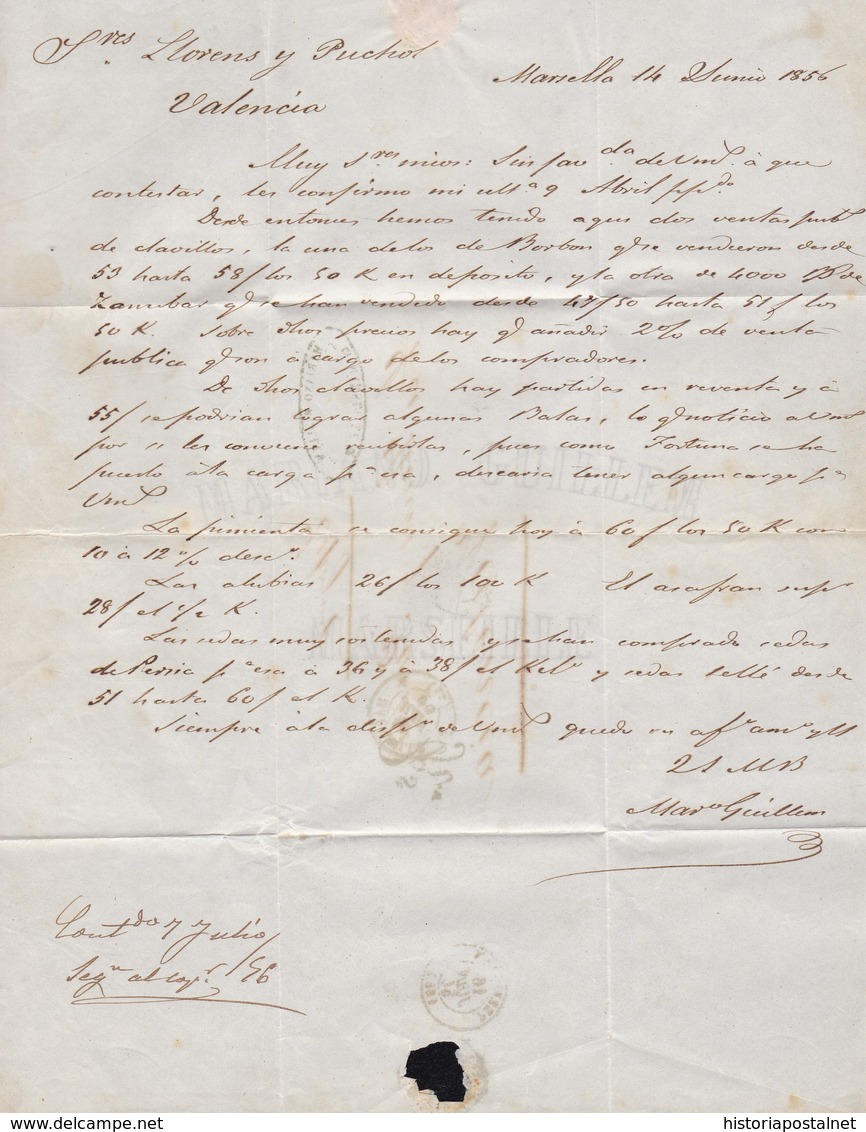 Sres Llorens y Puchol
Marsella 14 Junio 1856
Valencia
Muy Sres mios: Sin favda de Vms à que
contestar, les confirmo mi ulta 9 Abril ppdo
Desde entonces hemos tenido aqui dos ventas pubs
de clavillos, la una delos de Borbon qe se vendieron desde
53 hasta 58f los 50 K en deposito, y la otra de 4000 B de
Zanzibar qe se han vendido desde 47f50 hasta 51f los
50 K. Sobre dhos precios hay qe añadir 2% de venta
publica qe son à cargo delos compradores.
De dhos clavillos hay partidas en reventa y à
55f se podrian lograr algunas Balas, lo qe noticio a Vms
por si les conviene recibirlas, pues como Fortuna se ha
puesto à la carga pa esa, desearia tener algun cargo pa
Vms
La pimienta se consigue hoy à 60f los 50 K con
10 à 12 % desco.
Las alubias 26f los 100 K El asafran supr
28f el 1/2 K.
Las sedas muy sostenidas y se han comprado sedas
de Persia pa esa à 36 y à 38f el Kelo y sedas sellé desde
51 hasta 60f el K.
Siempre à la dispn de Vms queda su afmo amo y SS
QSMB
Maro Guillem
Contdo 7 Julio/56
Segn al copr
MARIANO GUILLEM
MARSEILLE
historiapostalnet